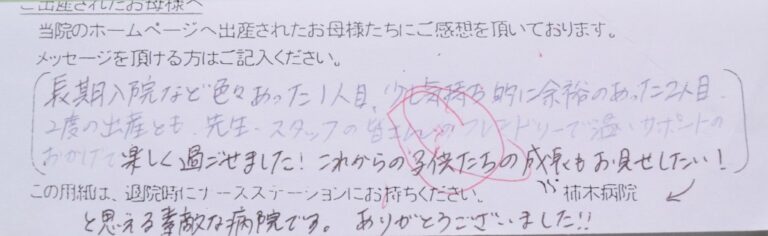 ご出産されたお母様へ
当院のホームページへ出産されたお母様たちにご感想を頂いております。
メッセージを頂ける方はご記入ください。
長期入院など色々あった1人目、少し気持ち的に余裕のあった2人目、
2度の出産とも、先生・スタッフの皆さんのフレンドリーで温いサポートの
おかげで楽しく過ごせました！これからの子供たちの成長もお見せしたい！
この用紙は、退院時にナースステーションにお持ちください。 柿木病院
と思える素敵な病院です。ありがとうございました!!